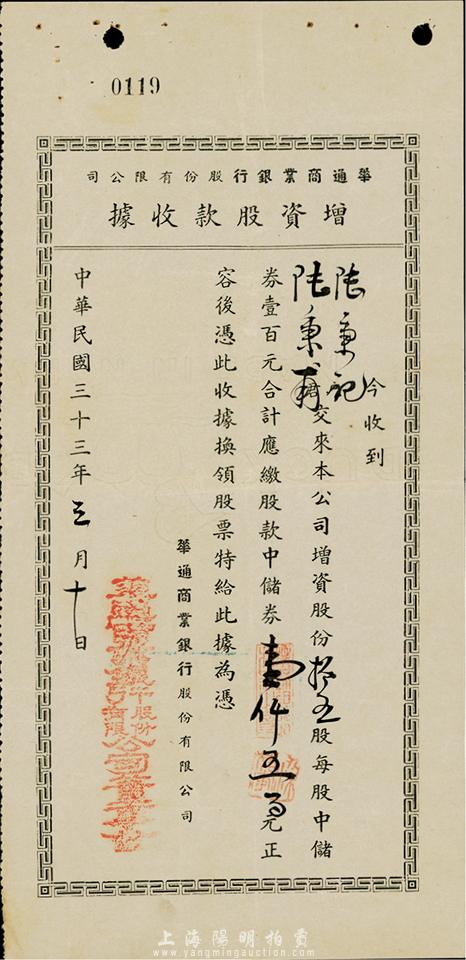 0119
華通商業銀行股份有限公司
增資股款收據
今收到
陸秉記
陸秉甫君交來本公司增資股份拾五股每股中儲
券壹百元合計應繳股款中儲券壹仟五百元正
容後憑此收據換領股票特給此據為憑
華通商業銀行股份有限公司
中華民國三十三年三月十日
上海陽明拍賣
www.yangmingauction.com